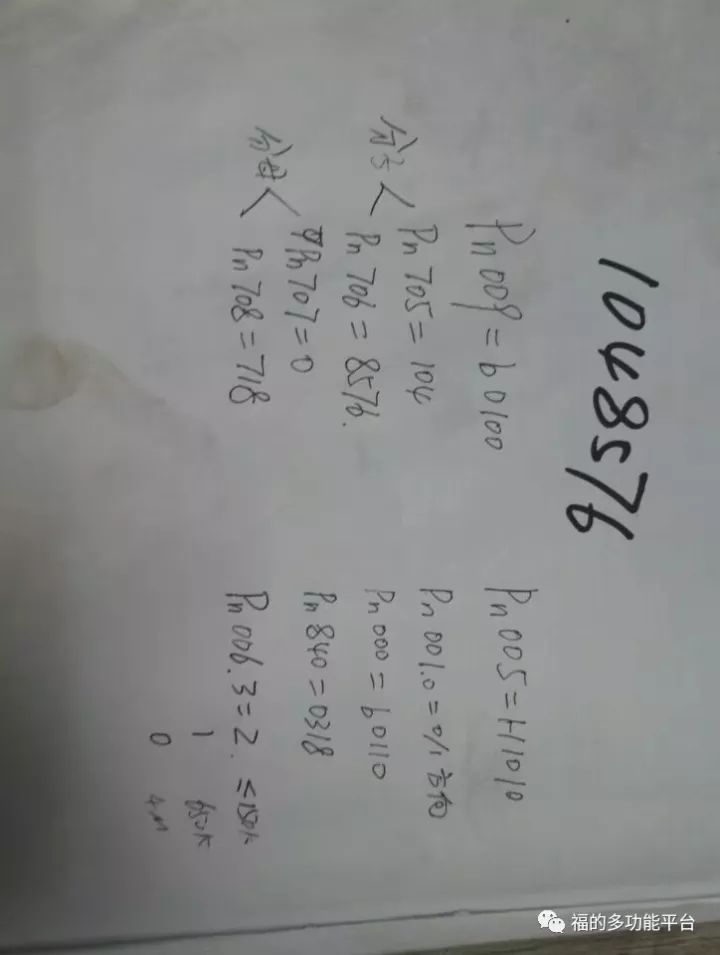 1048576
Pn009=b0100
分子< Pn705=104
Pn706=8576.
分母< Pn707=0
Pn708=718
Pn005=H1010
Pn001.0=0/1 方向
Pn000=b0110
Pn840=0318
Pn006.3=2. ≤150K
1 650K
0 4M
福的多功能平台